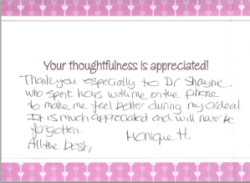 Your thoughtfulness is appreciated!
Thank you especially to Dr Shayne
who spent hours with me on the phone
to make me feel better during my ordeal
It is much appreciated and will never be
forgotten.
All the best,
Monique H.